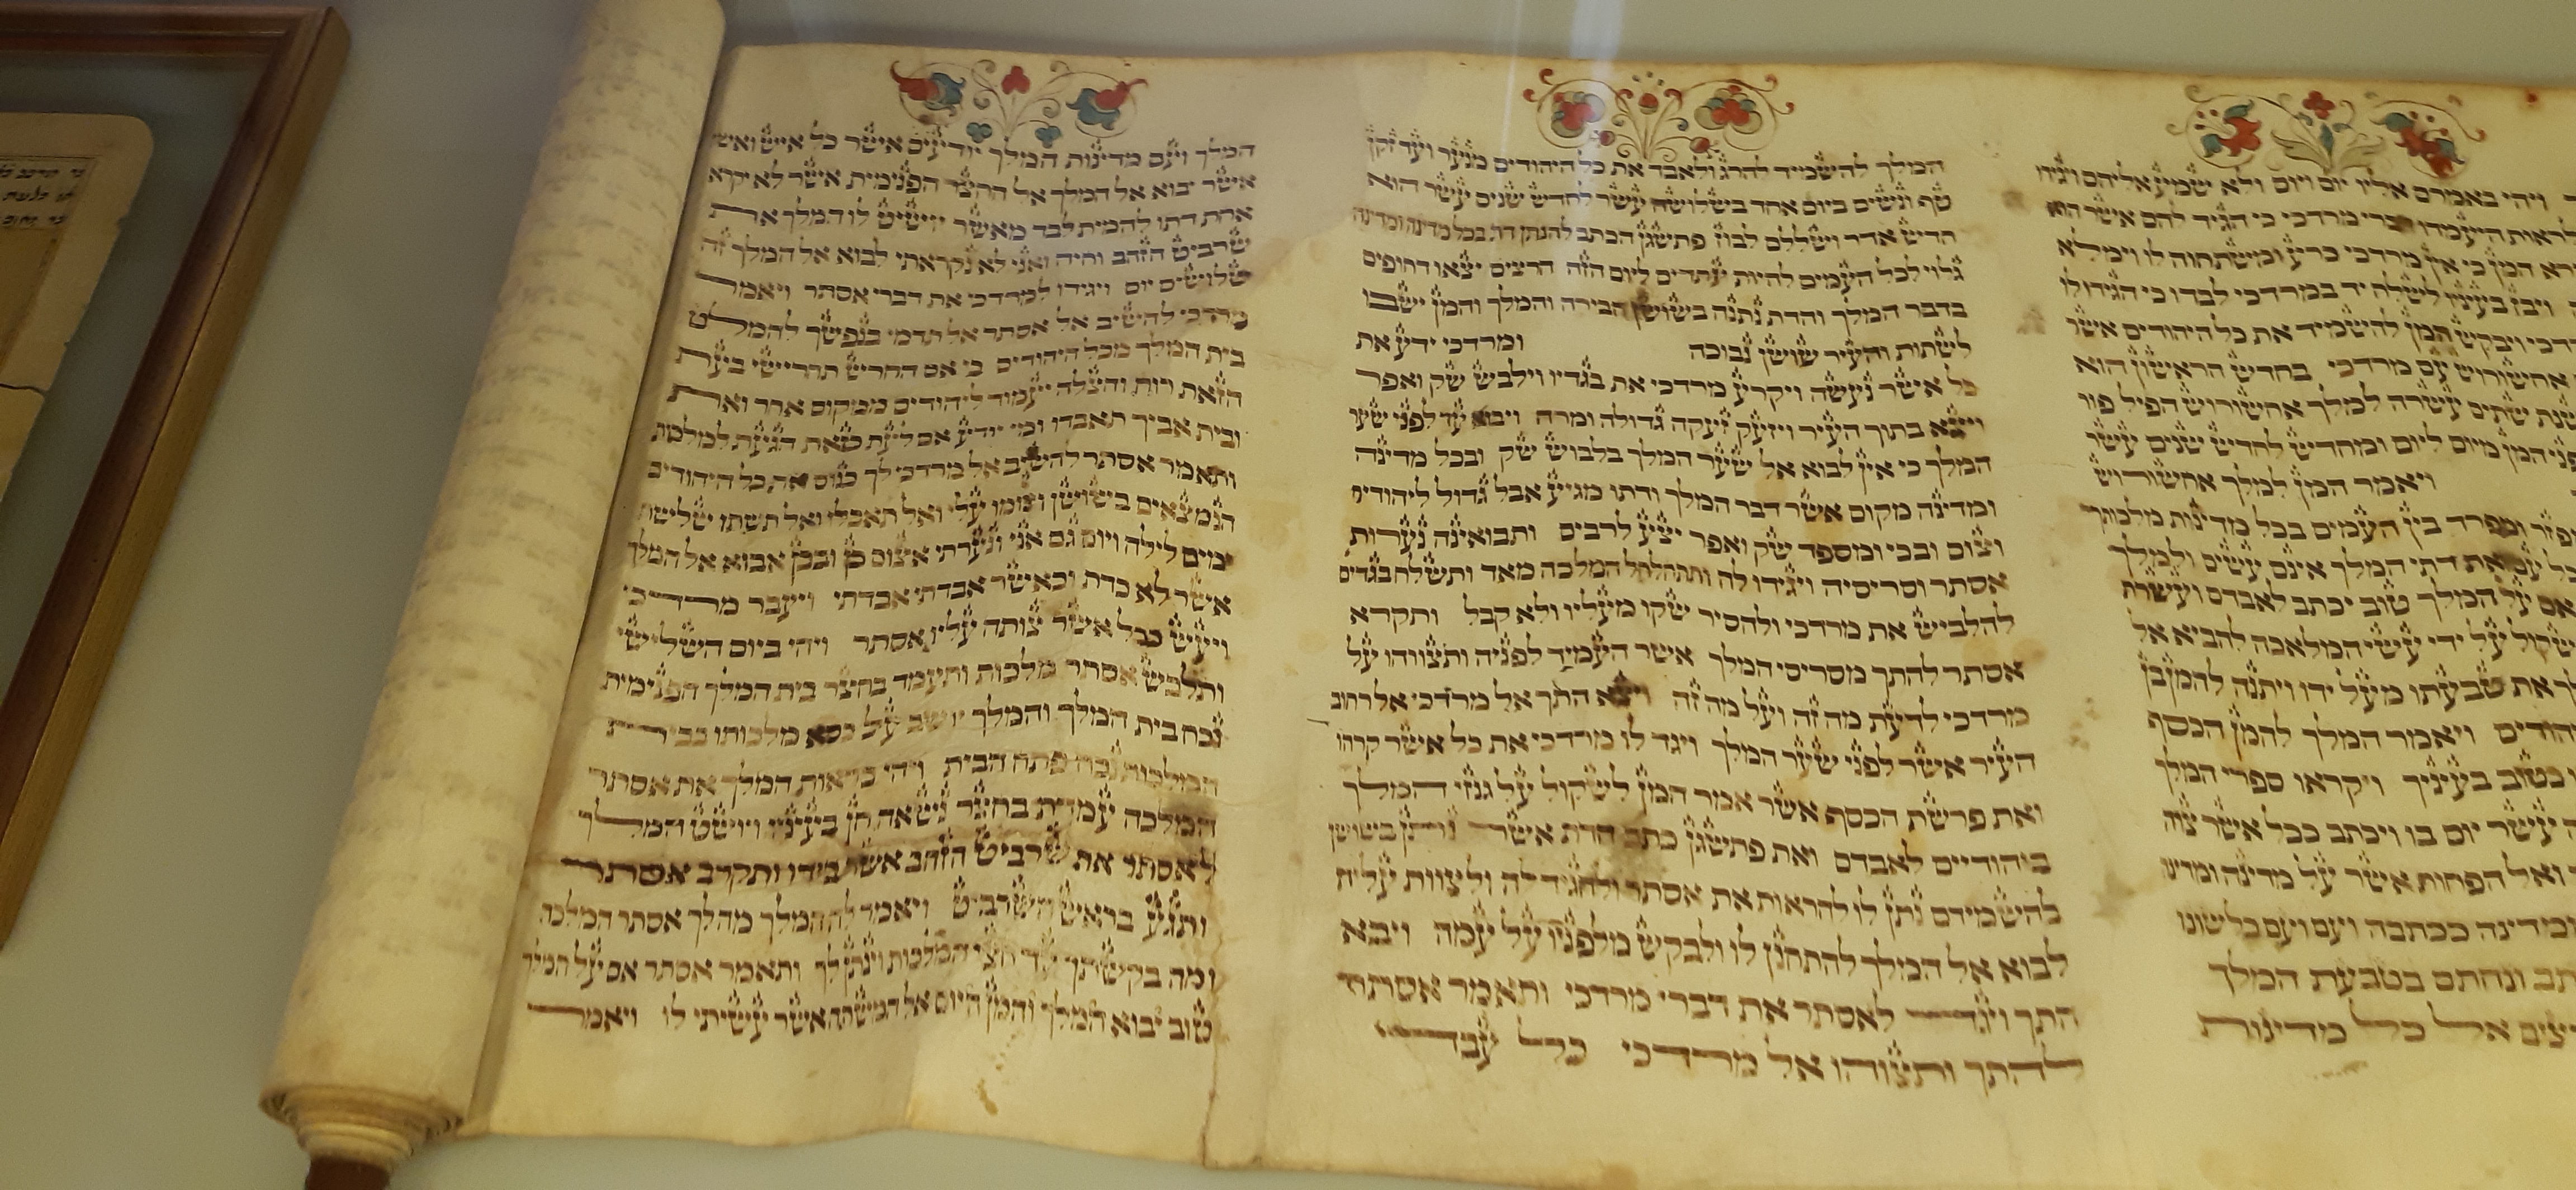 ויהי באמרם אליו יום ויום ולא שמע אליהם ויגידו
לראות היעמדו דברי מרדכי כי הגיד להם אשר הוא
המן כי אין מרדכי כרע ומשתחוה לו וימלא
ויבז בעיניו לשלח יד במרדכי לבדו כי הגידו לו
ויבקש המן להשמיד את כל היהודים אשר
אחשורוש עם מרדכי בחדש הראשון הוא
שנת שתים עשרה למלך אחשורוש הפיל פור
המן מיום ליום ומחדש לחדש שנים עשר
ויאמר המן למלך אחשורוש
ומפרד בין העמים בכל מדינות מלכותך
עם ואת דתי המלך אינם עשים ולמלך
אם על המלך טוב יכתב לאבדם ועשרת
אשקול על ידי עשי המלאכה להביא אל
את טבעתו מעל ידו ויתנה להמן בן
ויאמר המלך להמן הכסף
כטוב בעיניך ויקראו ספרי המלך
עשר יום בו ויכתב ככל אשר צוה
ואל הפחות אשר על מדינה ומדינה
מדינה ככתבה ועם ועם כלשונו
ונחתם בטבעת המלך
אל כל מדינות
המלך להשמיד להרג ולאבד את כל היהודים מנער ועד זקן
טף ונשים ביום אחד בשלושה עשר לחדש שנים עשר הוא
חדש אדר ושללם לבוז פתשגן הכתב להנתן דת בכל מדינה ומדינה
גלוי לכל העמים להיות עתדים ליום הזה הרצים יצאו דחופים
בדבר המלך והדת נתנה בשושן הבירה והמלך והמן ישבו
לשתות והעיר שושן נבוכה ומרדכי ידע את
כל אשר נעשה ויקרע מרדכי את בגדיו וילבש שק ואפר
ויצא בתוך העיר ויזעק זעקה גדולה ומרה ויבוא עד לפני שער
המלך כי אין לבוא אל שער המלך בלבוש שק ובכל מדינה
ומדינה מקום אשר דבר המלך ודתו מגיע אבל גדול ליהודים
וצום ובכי ומספד שק ואפר יצע לרבים ותבואינה נערות
אסתר וסריסיה ויגידו לה ותתחלחל המלכה מאד ותשלח בגדים
להלביש את מרדכי ולהסיר שקו מעליו ולא קבל ותקרא
אסתר להתך מסריסי המלך אשר העמיד לפניה ותצווהו על
מרדכי לדעת מה זה ועל מה זה ויצא התך אל מרדכי אל רחוב
העיר אשר לפני שער המלך ויגד לו מרדכי את כל אשר קרהו
ואת פרשת הכסף אשר אמר המן לשקול על גנזי המלך
ביהודיים לאבדם ואת פתשגן כתב הדת אשר נתן בשושן
להשמידם נתן לו להראות את אסתר ולהגיד לה ולצוות עליה
לבוא אל המלך להתחנן לו ולבקש מלפניו על עמה ויבא
התך ויגד לאסתר את דברי מרדכי ותאמר אסתר
להתך ותצוהו אל מרדכי כל עבדי
המלך ועם מדינות המלך יודעים אשר כל איש ואשה
אשר יבוא אל המלך אל החצר הפנימית אשר לא יקרא
אחת דתו להמית לבד מאשר יושיט לו המלך את
שרביט הזהב וחיה ואני לא נקראתי לבוא אל המלך זה
שלושים יום ויגידו למרדכי את דברי אסתר ויאמר
מרדכי להשיב אל אסתר אל תדמי בנפשך להמלט
בית המלך מכל היהודים כי אם החרש תחרישי בעת
הזאת רוח והצלה יעמוד ליהודים ממקום אחר ואת
ובית אביך תאבדו ומי יודע אם לעת כזאת הגעת למלכות
ותאמר אסתר להשיב אל מרדכי לך כנוס את כל היהודים
הנמצאים בשושן וצומו עלי ואל תאכלו ואל תשתו שלשת
ימים לילה ויום גם אני ונערתי אצום כן ובכן אבוא אל המלך
אשר לא כדת וכאשר אבדתי אבדתי ויעבר מרדכי
ויעש ככל אשר צותה עליו אסתר ויהי ביום השלישי
ותלבש אסתר מלכות ותעמד בחצר בית המלך הפנימית
נכח בית המלך והמלך יושב על כסא מלכותו בבית
המלכות נכח פתח הבית ויהי כראות המלך את אסתר
המלכה עמדת בחצר נשאה חן בעיניו ויושט המלך
לאסתר את שרביט הזהב אשר בידו ותקרב אסתר
ותגע בראש השרביט ויאמר לה המלך מה לך אסתר המלכה
ומה בקשתך עד חצי המלכות וינתן לך ותאמר אסתר אם על המלך
טוב יבוא המלך והמן היום אל המשתה אשר עשיתי לו ויאמר